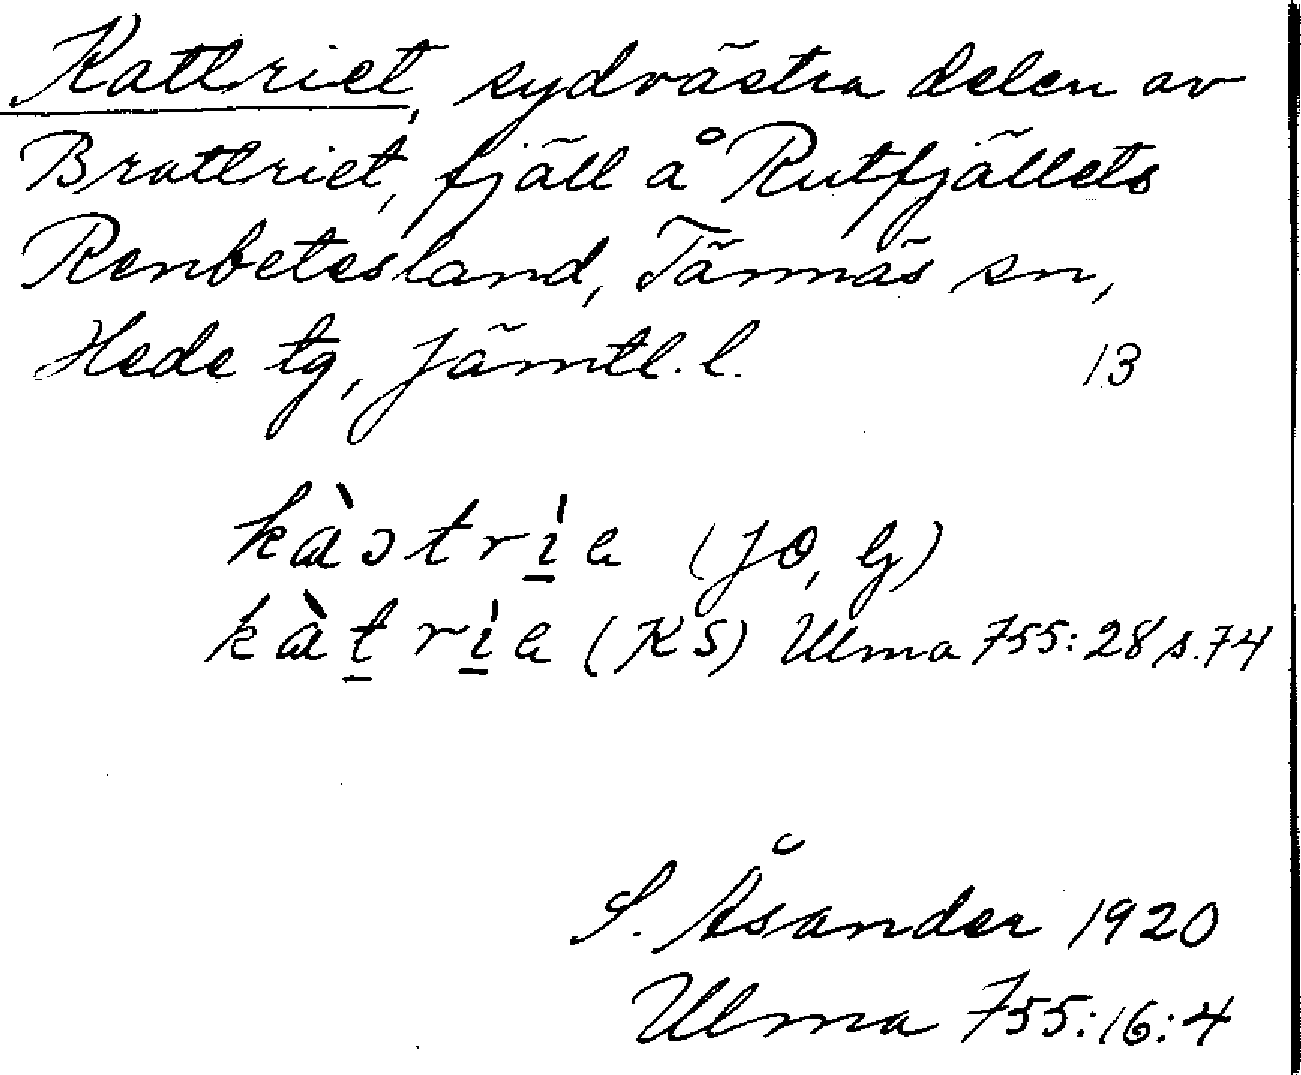 Kattriet, sydvästra delen av
Brattriet, fjäll å Rutfjällets
Renbetesland, Tännäs sn,
Hede tg, Jämtl. l. 13
kàɔtrìe (JO, G)
kàtrìe (KS) Ulma 755:28 s.74
S. Åsander 1920
Ulma 755:16:4